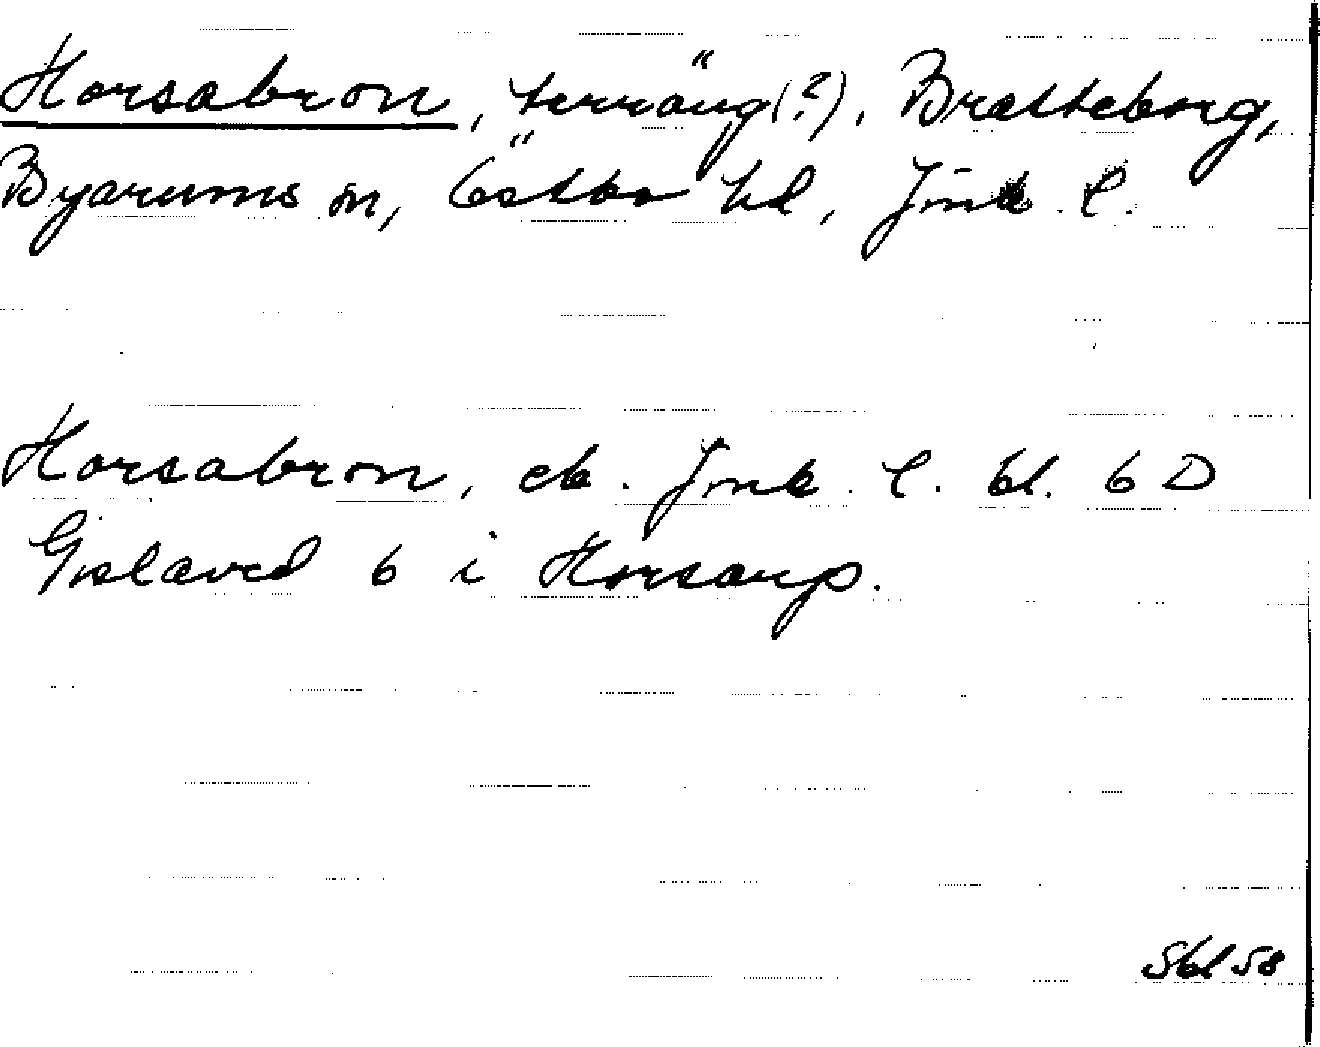 Horsabron, terräng(?), Bratteborg,
Byarums sn, Östbo hd, Jönk. l.
Horsabron, ek. Jönk. l. bl. 6 D
Gislaved 6 i Horsarp.
Sbl 58